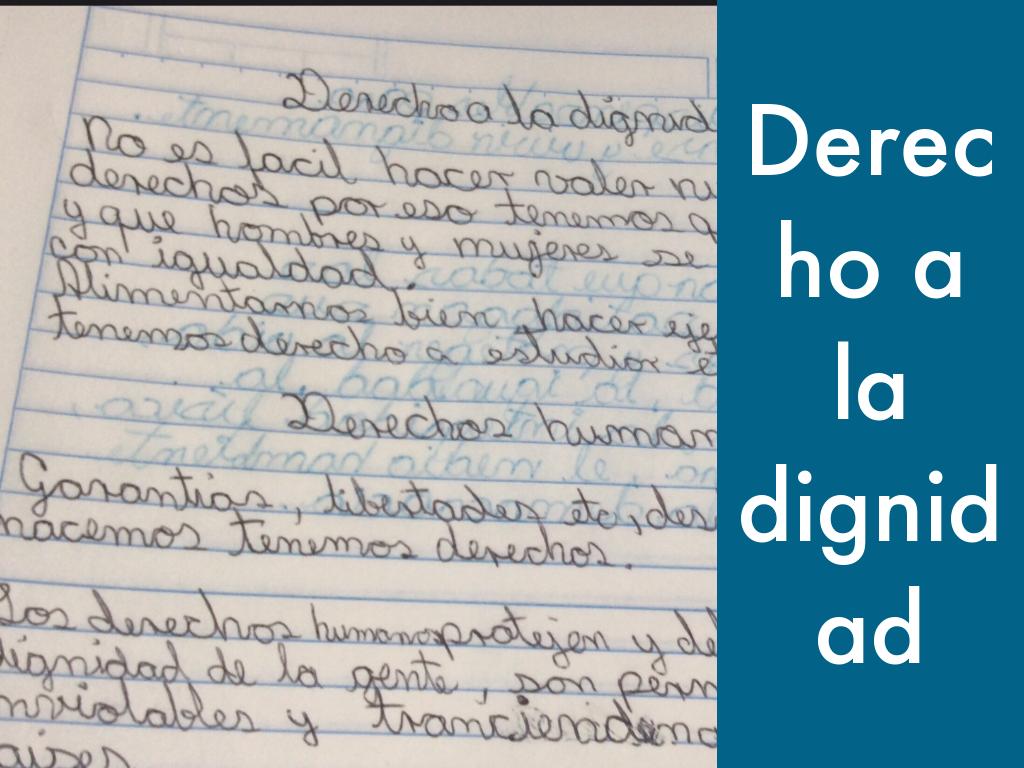 Derecho a la dignid
No es facil hacer valer nu
derechos por eso tenemos q
y que hombres y mujeres se
con igualdad.
Alimentarnos bien, hacer eje
tenemos derecho a estudiar e
Derechos human
Garantias, libertades etc, des
nacemos tenemos derechos.
Los derechos humanos protejen y de
dignidad de la gente, son perm
inviolables y tranciendeno
aises
Derec
ho a
la
dignid
ad